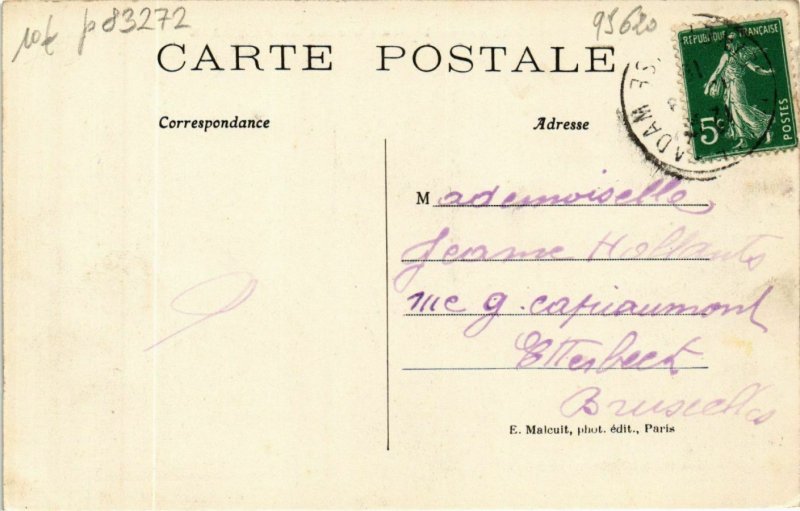 10€ p 83272
95620
CARTE POSTALE
RÉPUBLIQUE FRANÇAISE
5c
POSTES
ADAM
Correspondance
Adresse
Mademoiselle
Jeanne
rue g. capiaumont
Etterbeek
Bruxelles
E. Malcuit, phot. édit., Paris